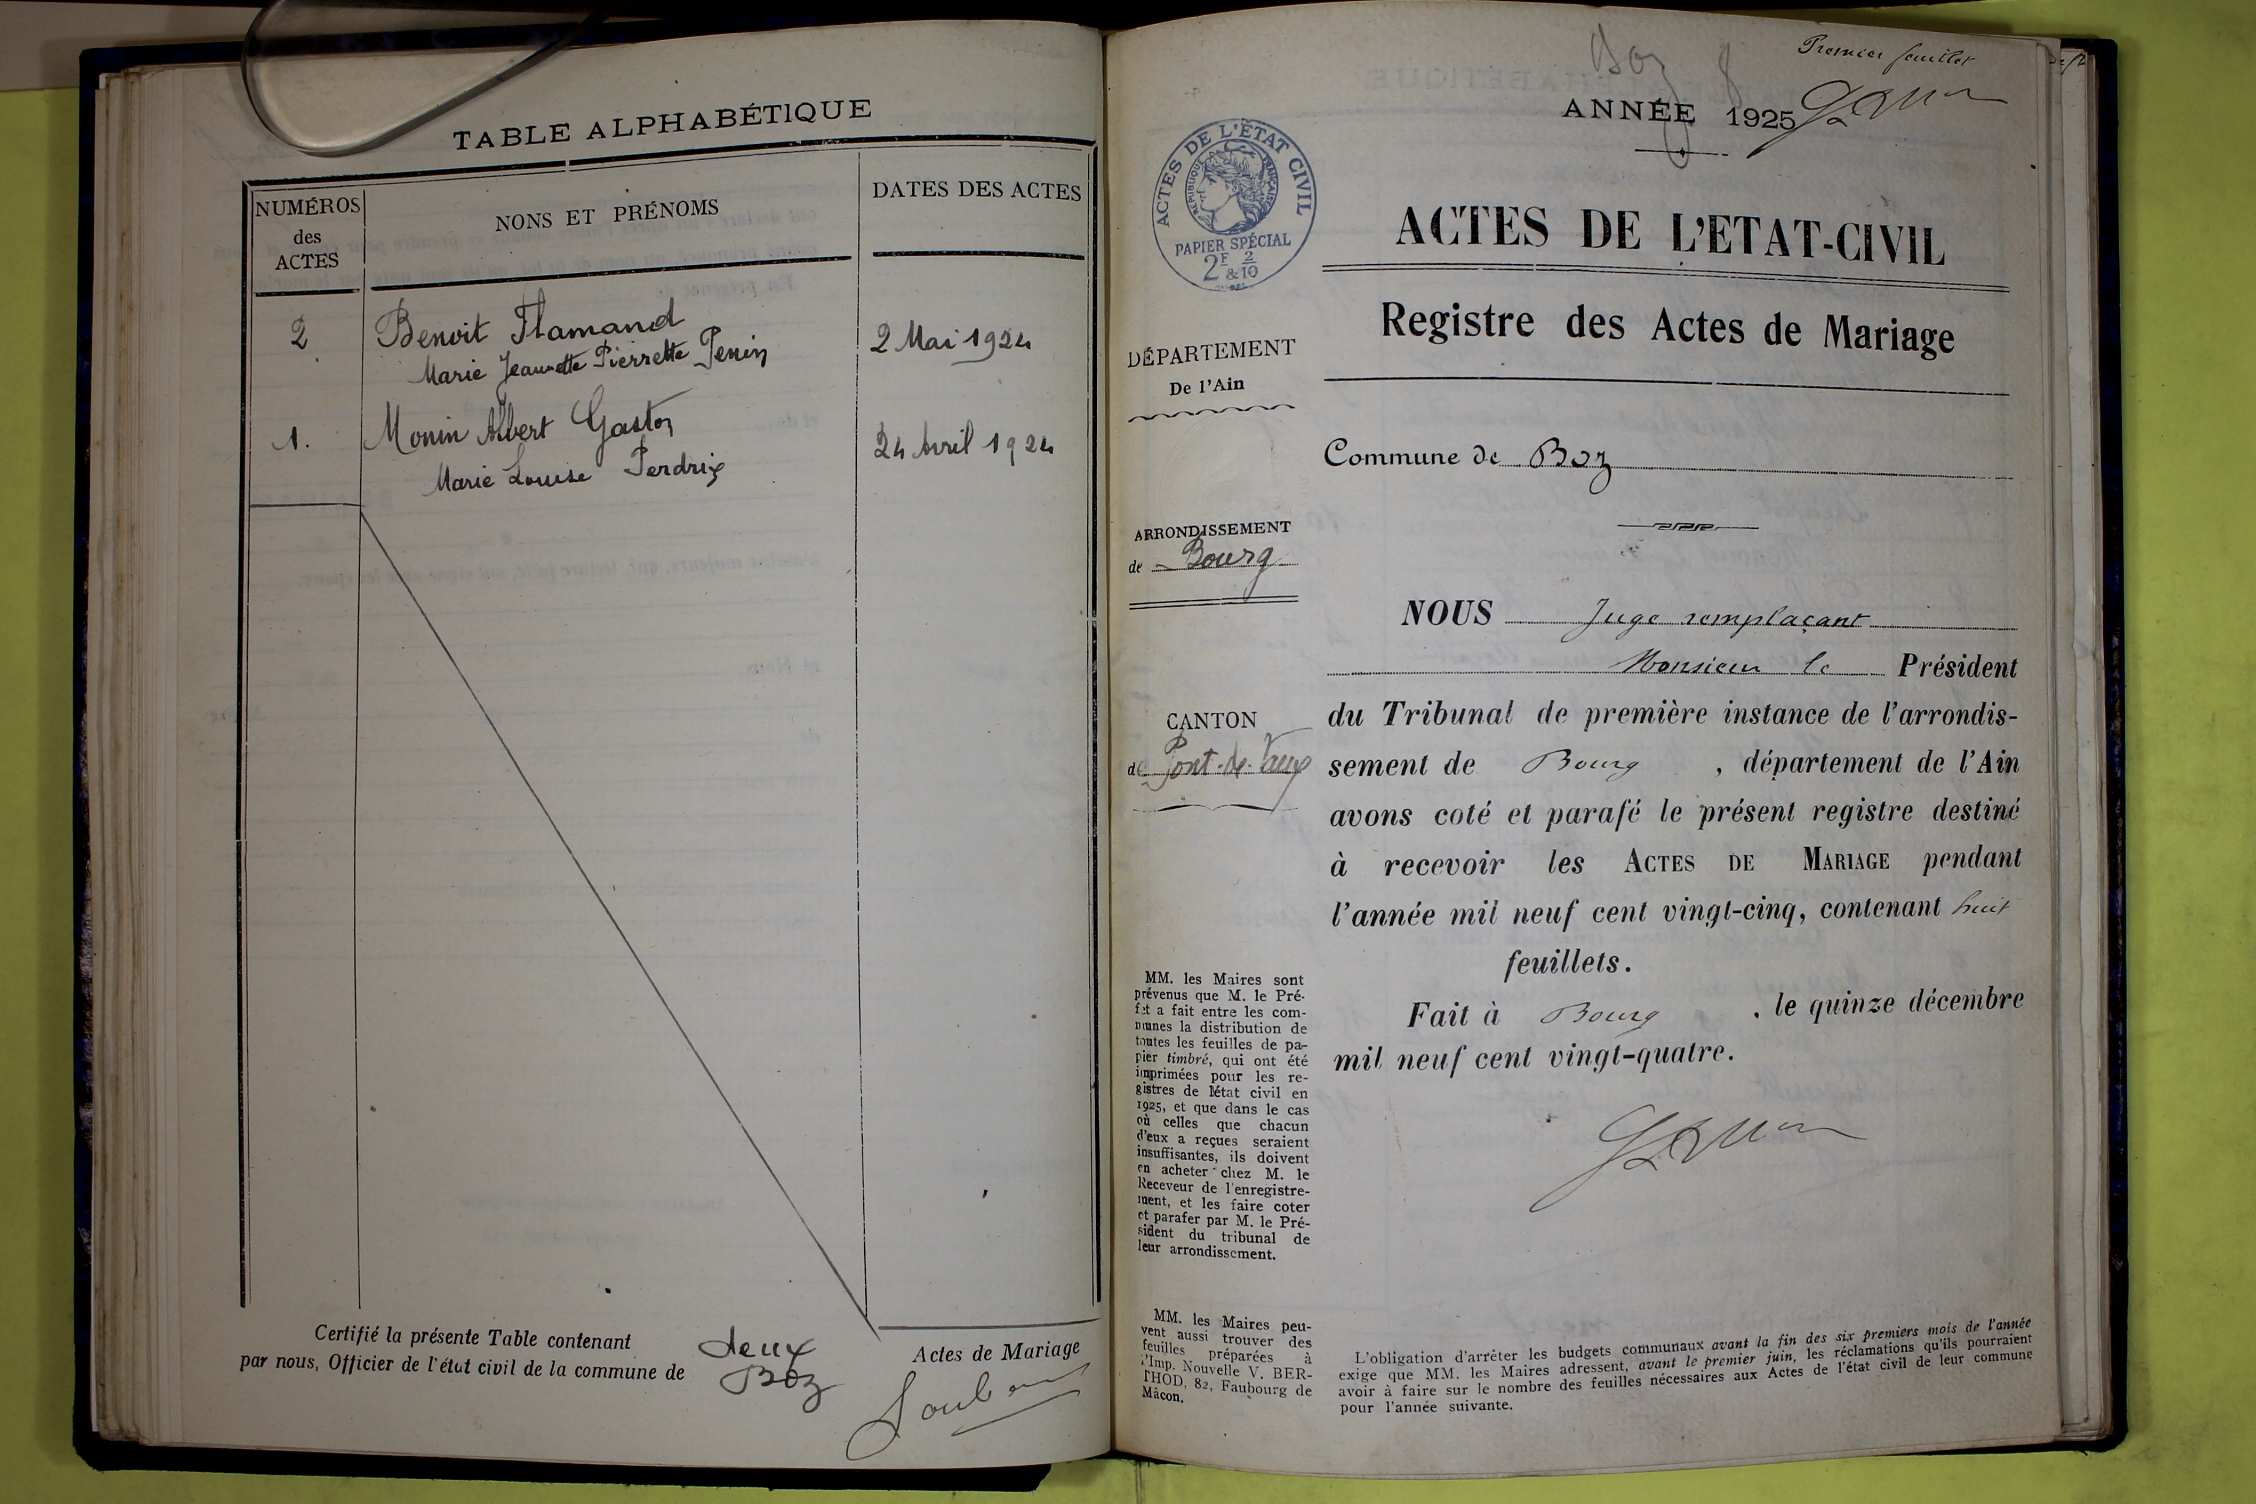 TABLE ALPHABÉTIQUE
NUMÉROS
des
ACTES
NONS ET PRÉNOMS
DATES DES ACTES
2
Benoit Flamand
2 Mai 1924
Marie Jeannette Pierrette Penin
1.
Monin Albert Gaston
24 Avril 1924
Marie Louise Perdrix
Certifié la présente Table contenant deux Actes de Mariage
par nous, Officier de l'état civil de la commune de Boz
Boz 8
Premier feuillet
ANNÉE 1925
ACTES DE L'ÉTAT CIVIL
RÉPUBLIQUE FRANÇAISE
PAPIER SPÉCIAL
2F & 2/10
ACTES DE L'ETAT-CIVIL
Registre des Actes de Mariage
DÉPARTEMENT
De l'Ain
Commune de Boz
ARRONDISSEMENT
de Bourg
CANTON
de Pont-de-Vaux
NOUS Juge remplaçant
Monsieur le Président
du Tribunal de première instance de l'arrondis-
sement de Bourg, département de l'Ain
avons coté et parafé le présent registre destiné
à recevoir les ACTES DE MARIAGE pendant
l'année mil neuf cent vingt-cinq, contenant huit
feuillets.
Fait à Bourg, le quinze décembre
mil neuf cent vingt-quatre.
MM. les Maires sont
prévenus que M. le Pré-
fet a fait entre les com-
munes la distribution de
toutes les feuilles de pa-
pier timbré, qui ont été
imprimées pour les re-
gistres de l'état civil en
1925, et que dans le cas
où celles que chacun
d'eux a reçues seraient
insuffisantes, ils doivent
en acheter chez M. le
Receveur de l'enregistre-
ment, et les faire coter
et parafer par M. le Pré-
sident du tribunal de
leur arrondissement.
MM. les Maires peu-
vent aussi trouver des
feuilles préparées à
l'Imp. Nouvelle V. BER-
THOD, 82, Faubourg de
Mâcon.
L'obligation d'arrêter les budgets communaux avant la fin des six premiers mois de l'année
exige que MM. les Maires adressent, avant le premier juin, les réclamations qu'ils pourraient
avoir à faire sur le nombre des feuilles nécessaires aux Actes de l'état civil de leur commune
pour l'année suivante.